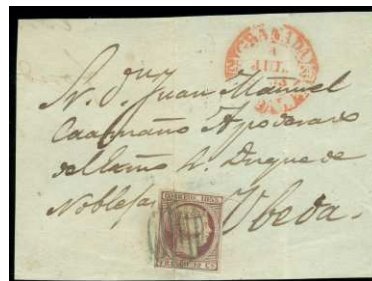 GRANADA
JUL.
S. D. Juan Manuel
Caamaño Apoderado
del Exmo S. Duque de
Noblejas
Ubeda.
CORREOS 1853